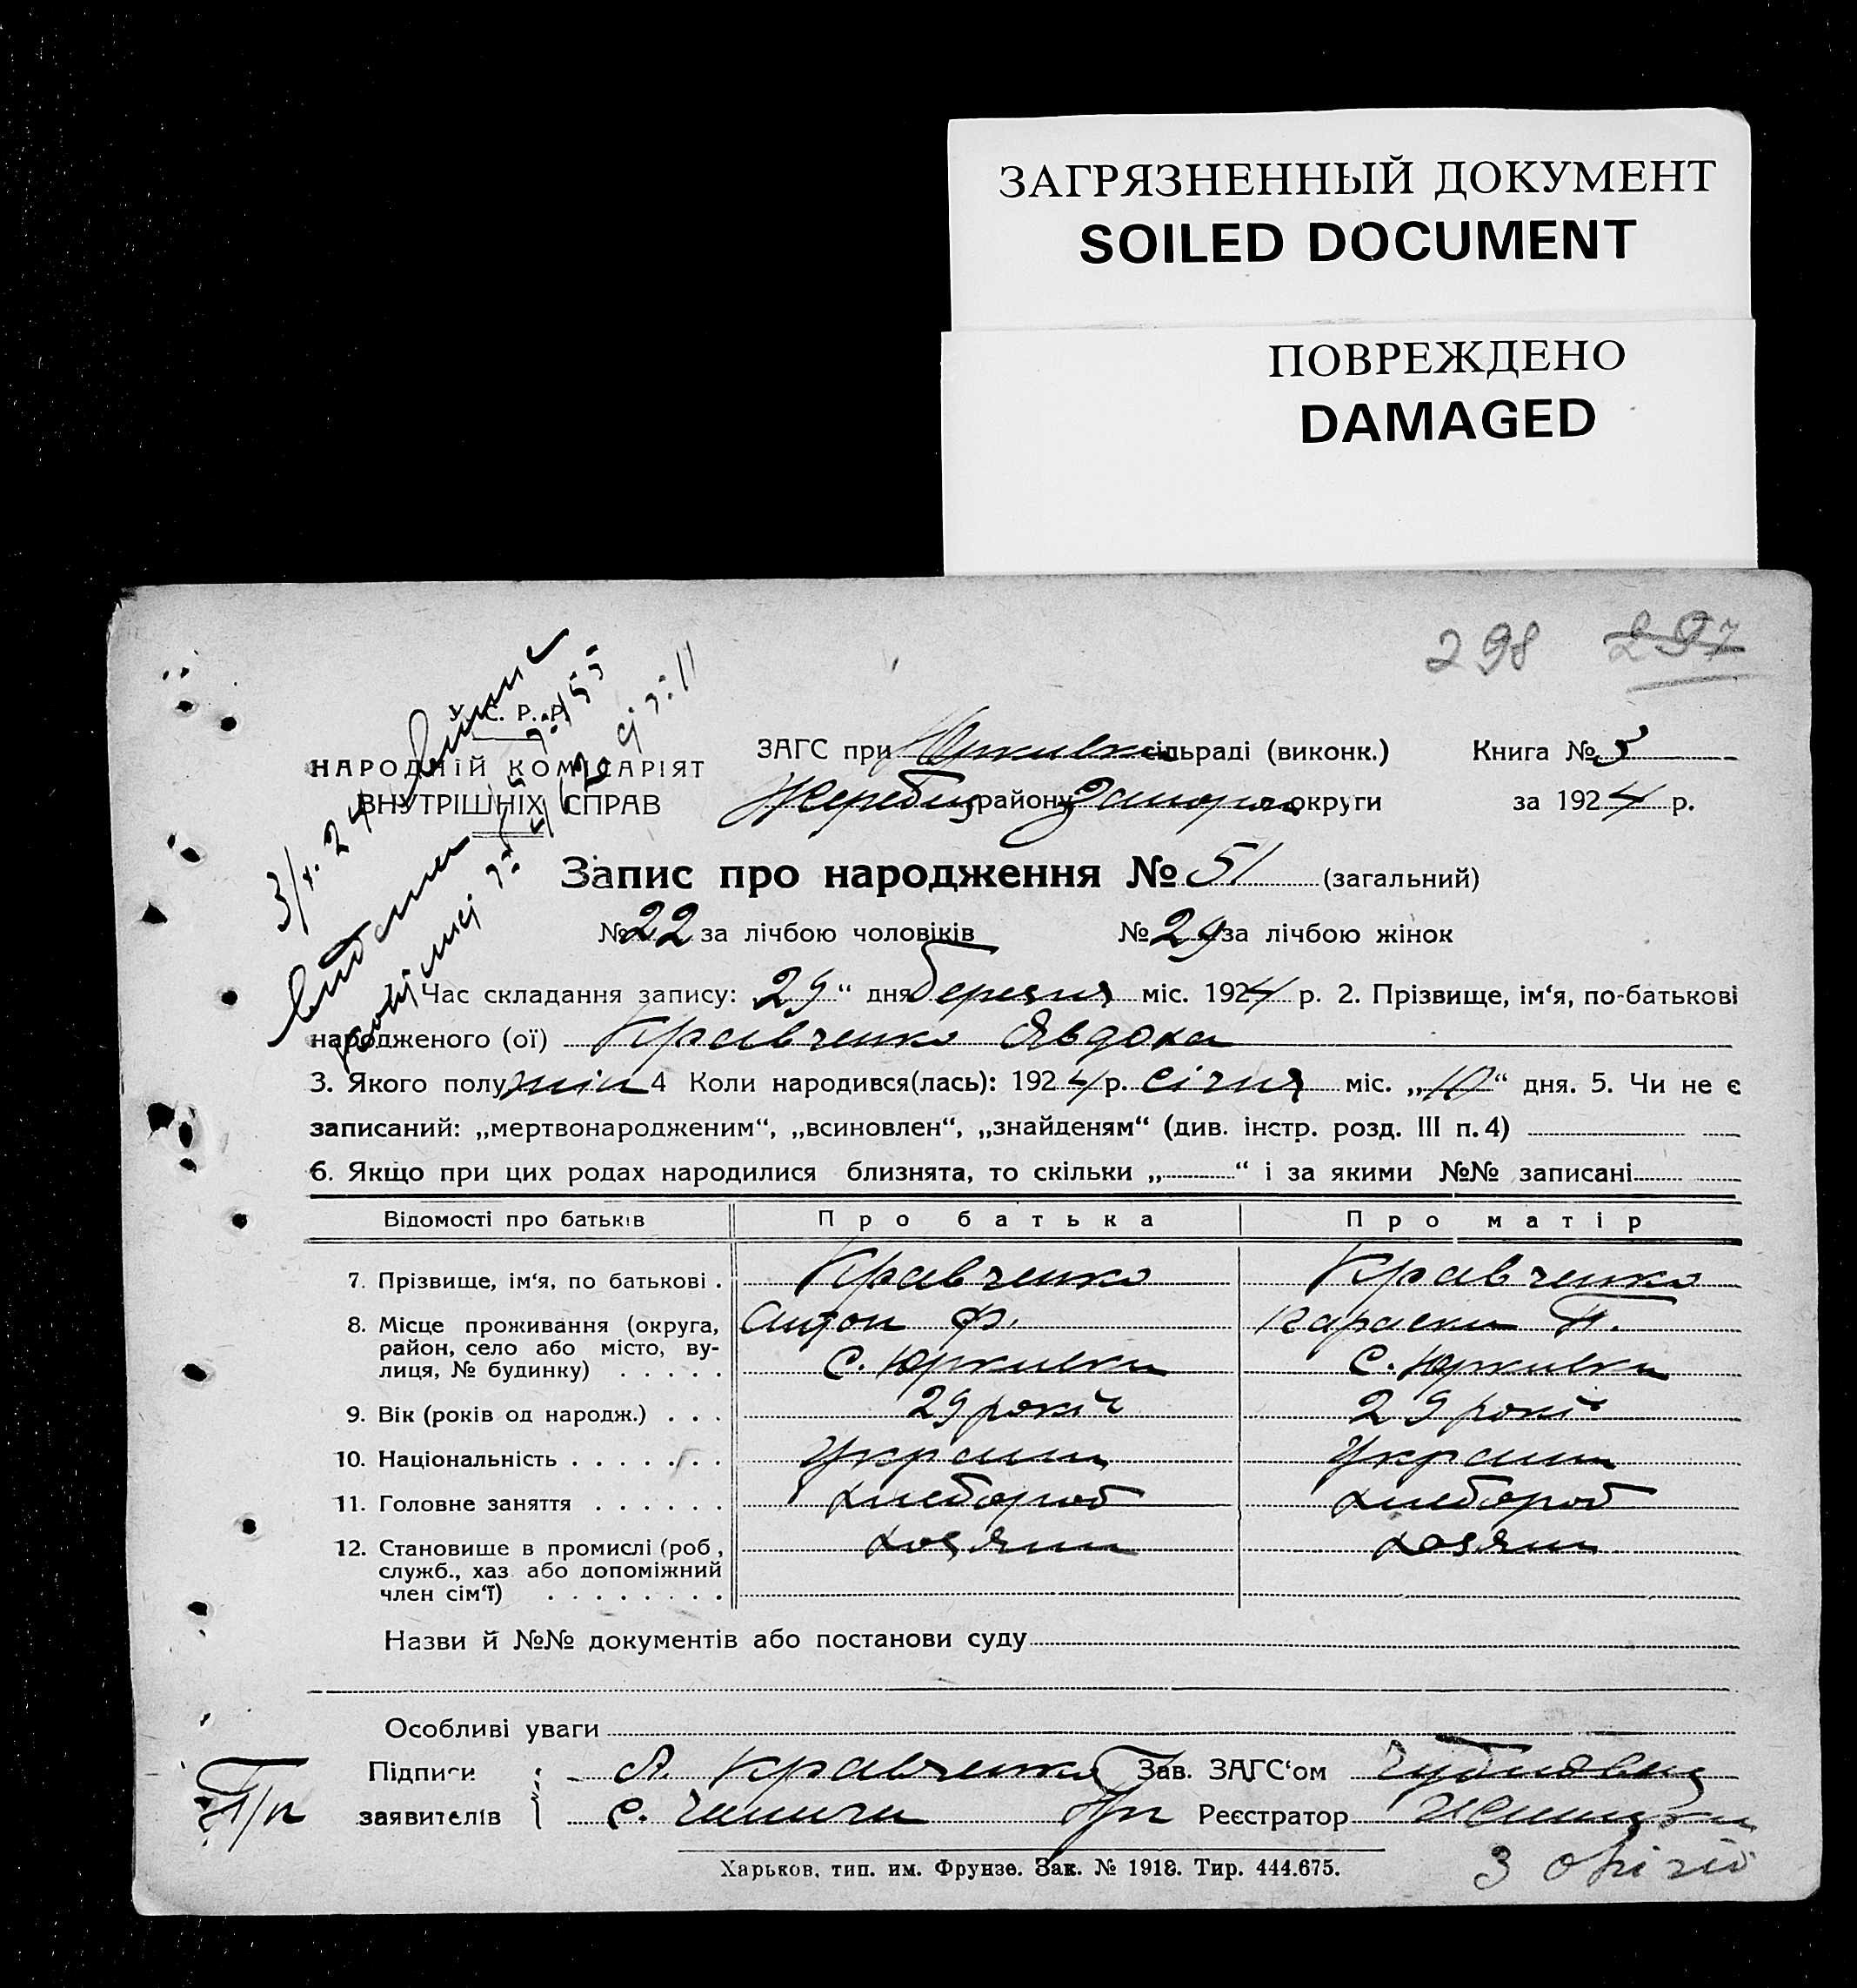 ЗАГРЯЗНЕННЫЙ ДОКУМЕНТ
SOILED DOCUMENT
ПОВРЕЖДЕНО
DAMAGED
298 297
У. С. Р. Р.
НАРОДНІЙ КОМІСАРІЯТ
ВНУТРІШНІХ СПРАВ
ЗАГС при Юркивск сільраді (виконк.) Книга № 5
Жеребец району Запорож округи за 1924 р.
Запис про народження № 51 (загальний)
№ 22 за лічбою чоловіків № 29 за лічбою жінок
Час складання запису: 29 “ дня березня міс. 1924 р. 2. Прізвище, ім‘я, по-батькові
народженого (ої) Кравченко Явдоха
3. Якого полу жін 4 Коли народився(лась): 1924 р. січня міс. „10“ дня. 5. Чи не є
записаний: „мертвонародженим“, „всиновлен“, „знайденям“ (див. інстр. розд. III п. 4)
6. Якщо при цих родах народилися близнята, то скільки „ “ і за якими №№ записані
Відомості про батьків Про батька Про матір
7. Прізвище, ім‘я, по батькові . Кравченко Кравченко
8. Місце проживання (округа, Антон Ф. Параска П.
район, село або місто, ву-
лиця, № будинку) . . . . . с. Юркивка с. Юркивка
9. Вік (років од народж.) . . . 29 років 29 років
10. Національність . . . . . . . украин украин
11. Головне заняття . . . . . . хлебороб хлебороб
12. Становище в промислі (роб, хозяин хозяин
служб., хаз. або допоміжний
член сім‘ї) . . . . . . . .
Назви й №№ документів або постанови суду
Особливі уваги
Підписи А. Кравченко Зав. ЗАГС‘ом
заявителів С. Реєстратор
Харьков, тип. им. Фрунзе. Зак. № 1918. Тир. 444.675.